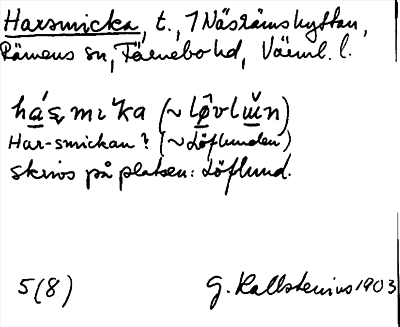 Harsmicka, t., 7 Näsrämshyttan,
Rämens sn, Färnebo hd, Värml. l.
hás̨mɩ'ka (~ lø̂vlun)
Har-smickan? (~ Löflunden)
skrivs på platsen: Löflund.
5(8) G. Kallstenius 1903